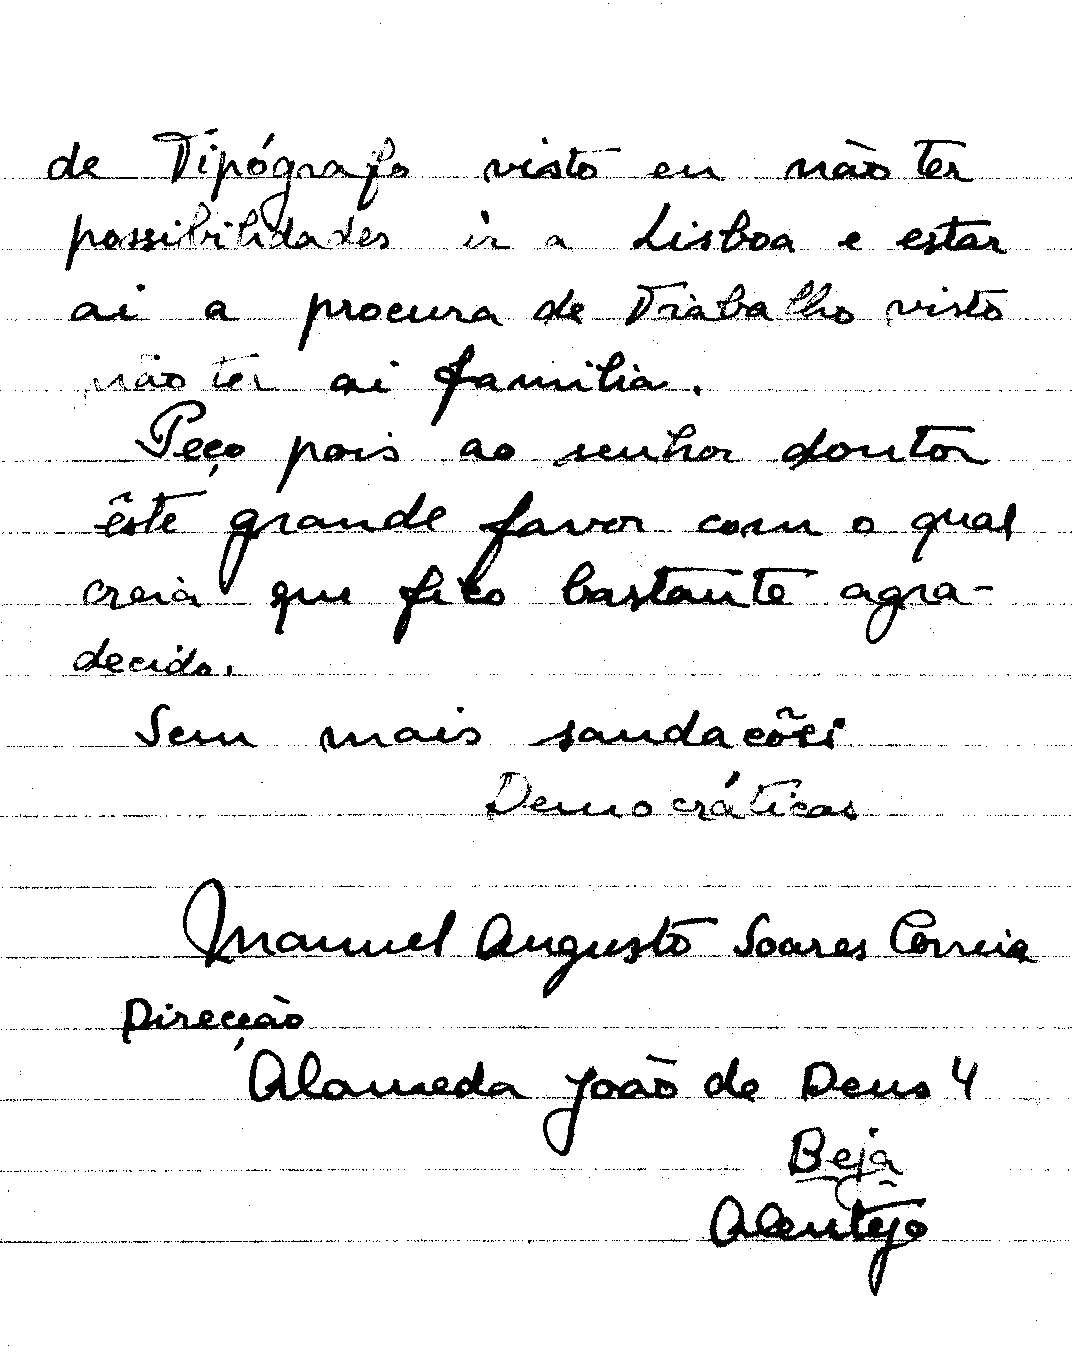 de Tipógrafo visto eu não ter
possibilidades ir a Lisboa e estar
ai a procura de Trabalho visto
não ter ai familia.
Peço pois ao senhor doutor
êste grande favor com o qual
creia que fico bastante agra-
decido.
Sem mais saudacões
Democráticas
Manuel Augusto Soares Correia
Direcção
Alameda João de Deus 4
Beja
Alentejo